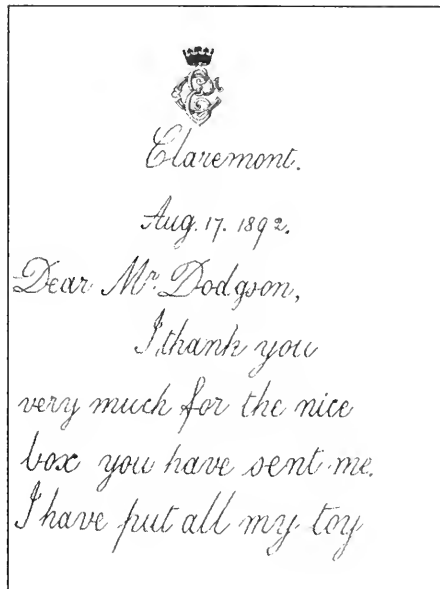 Claremont.
Aug. 17. 1892.
Dear Mr. Dodgson,
I thank you
very much for the nice
box you have sent me.
I have put all my toy